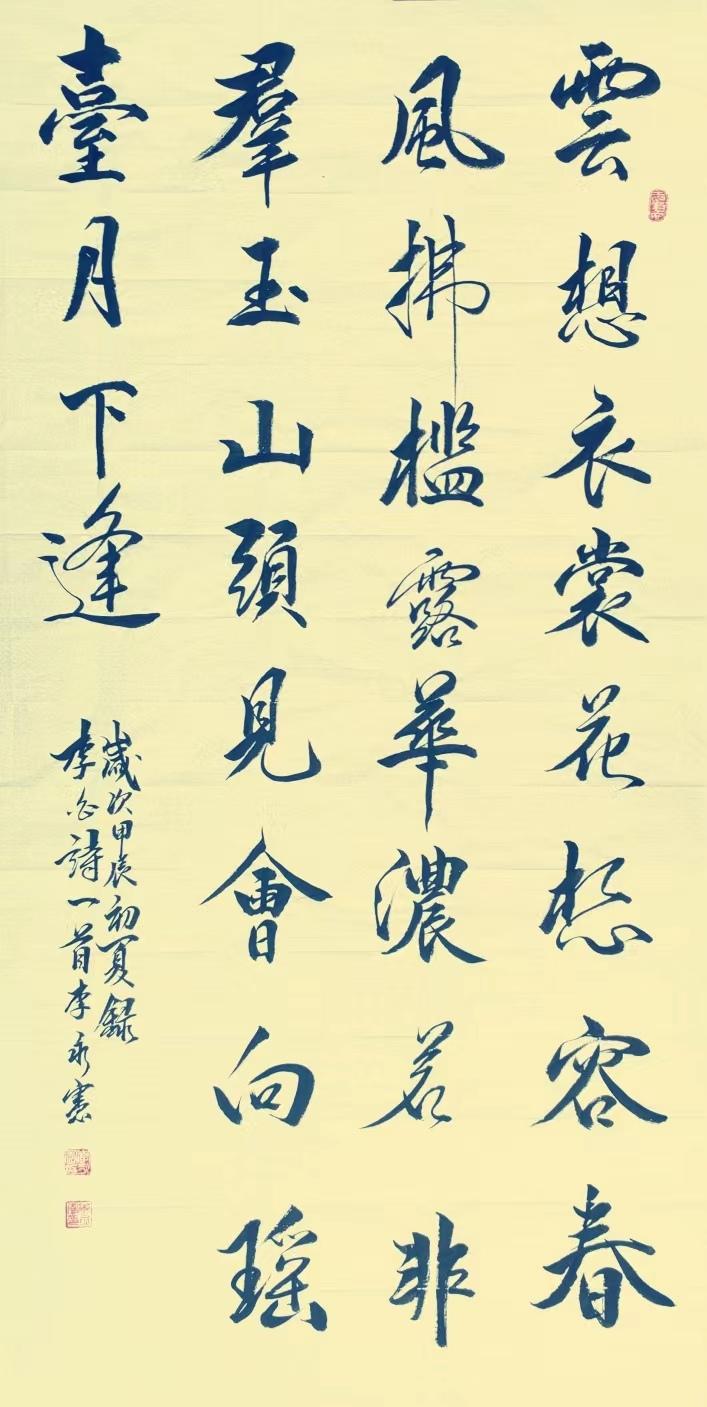 雲想衣裳花想容春
風拂檻露華濃若非
羣玉山頭見會向瑶
臺月下逢
歲次甲辰初夏録
李白詩一首李永憲